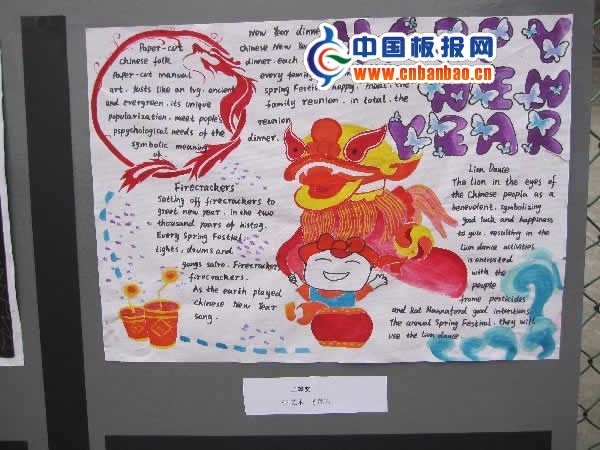 Paper-cut
chinese folk
Paper-cut manual
art. Justs like an Ivy. ancient
and evergreen. its unique
popularization. meet pople's
pspychological needs of the
symbolic meaning
of
New Year dinner
Chinese New Year
dinner. each
every family
spring Festival happy. meal. the
family reunion. in total. the
reunion
dinner.
中国板报网
www.cnbanbao.cn
Firecrackers
Setting off firecrackers to
greet new year. in the two
thousand years of histog.
Every Spring Festival
lights, drums and
gongs salvo. Firecrackers
firecrackers.
As the earth played
Chinese New Year
song.
Lion Dance
The lion in the eyes of
the Chinese people as a
benevolent. symbolizing
good luck and happiness
to you. resulting in the
lion dance activities
is entrusted
with the
people
frome pesticides
and Kat Hannaford good intentions.
The annual Spring Festival. they will
use the lion dance.
二等奖